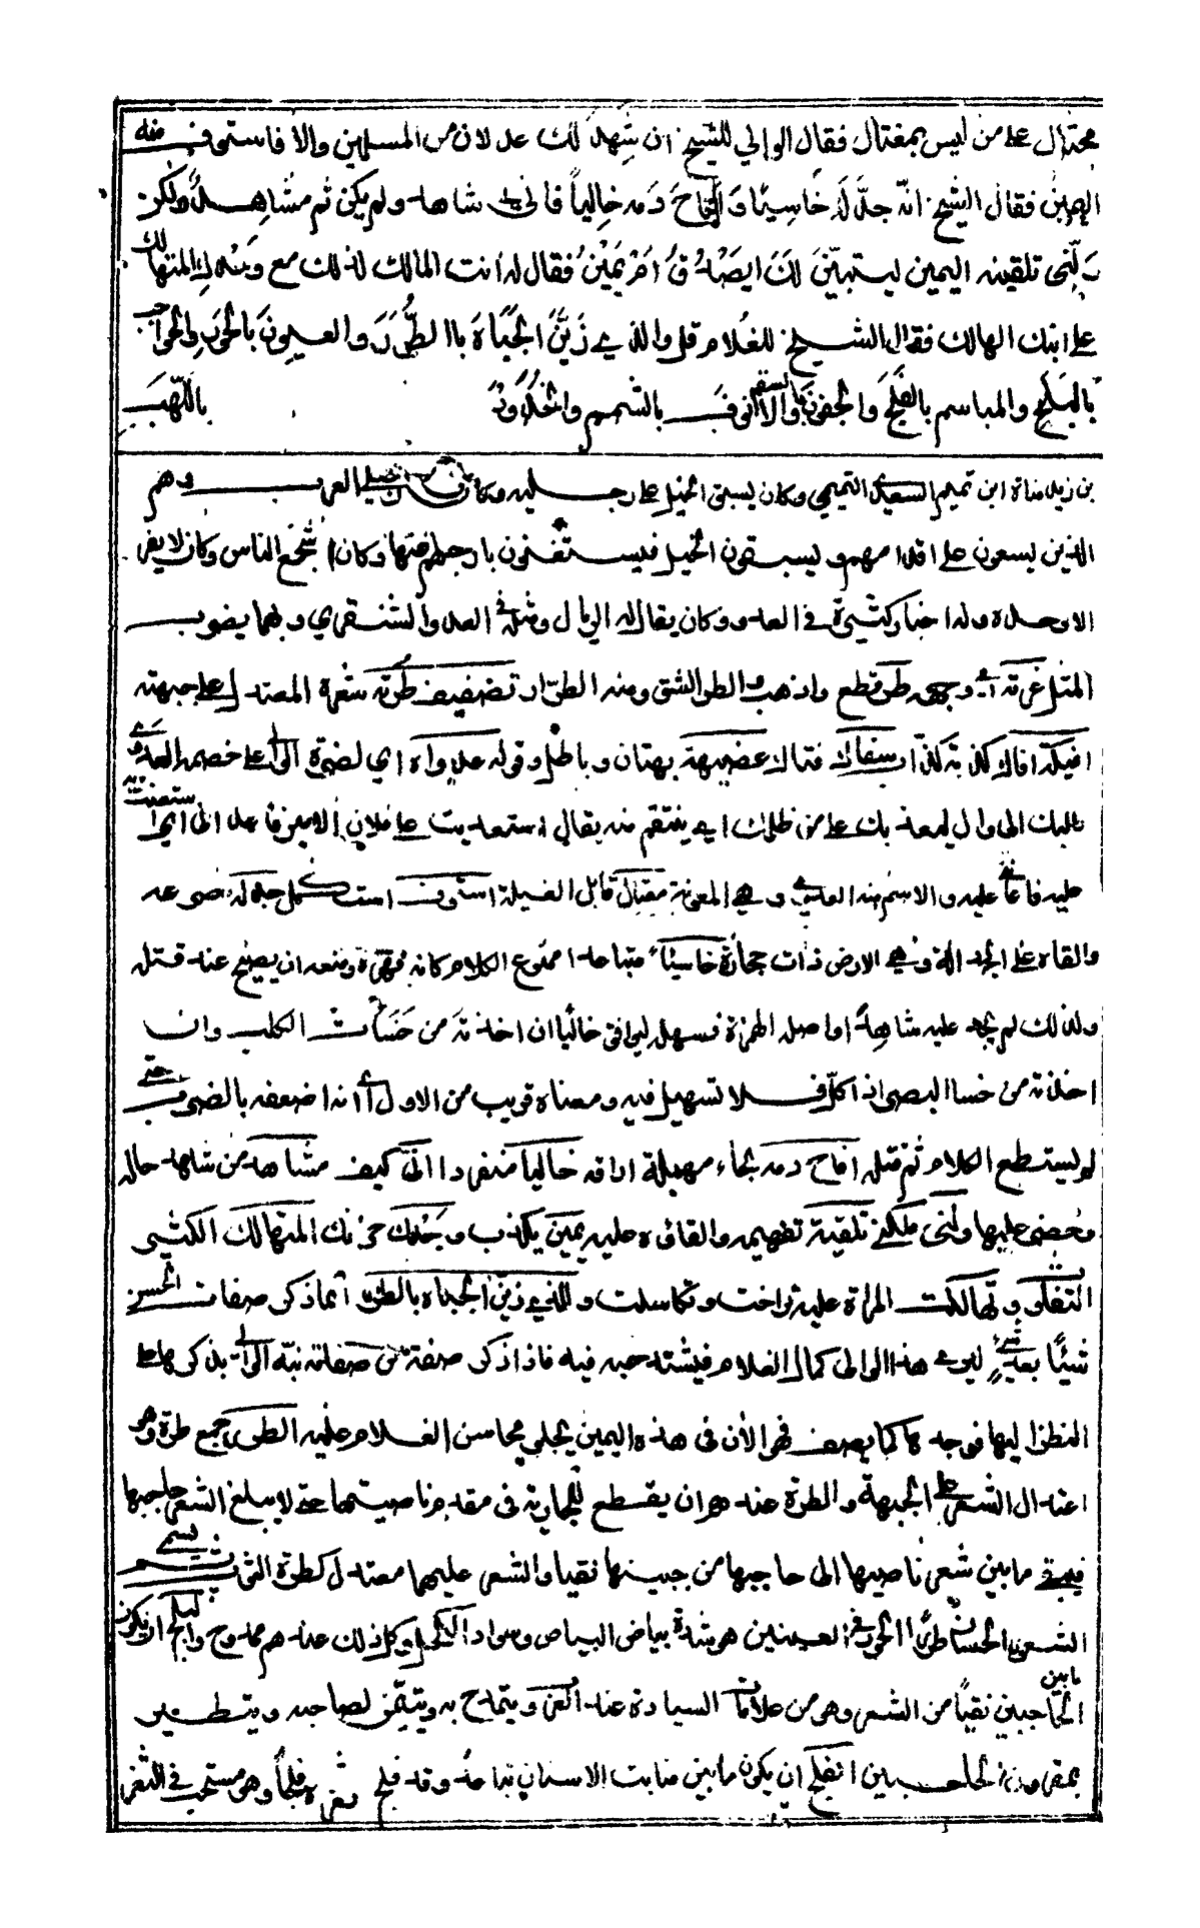 محتال على من ليس بمغتال فقال الوالي للشيخ ان شهد لك عدلان من المسلمين والا فاستوف منه
اليمين فقال الشيخ انه جدله خاسيا وافاح دمه خاليا فانى لي شاهد ولم يكن ثم مشاهد ولكن
ولني تلقينه اليمين ليستبين لك ايصدق ام يمين فقال له انت المالك لذلك مع وجدك المتهالك
على ابنك الهالك فقال الشيخ للغلام قل والذي زين الجباه بالطرر والعيون بالحور والحواجب
بالبلج والمباسم بالفلج والجفون بالسقم والانوف بالشمم والخدود باللهب
بن زيد مناة ابن تميم السعدي التميمي وكان يسبق الخيل على رجليه وكان من العرب وهم
الذين يسعون على اقدامهم ويسبقون الخيل فيستغنون بارجلهم عنها وكان اشجع الناس وكان لا يغر
الا وحده وله اخبار كثيرة في العدو وكان يقال له الريال ومثله في العدو الشنفري وبهما يضرب
المثل غرته اي وجهه طر قطع واذهب والطر الشق ومنه الطرار تضفيف طرته شعره المعتدل على جبهته
افيكة افاك كذبة كذاب سفاك قتال عضيهة بهتان وباطل وقوله عدواه اي لضرة الوالي على خصمه العدوى
طلبك الى وال ليعديك على من ظلمك اي ينتقم منه يقال استعديت على فلان الامير فاعداني اي استعنت به
عليه فاعانني عليه والاسم منه العدوى وهي المعونة مغتال قاتل الغيلة استوف استكمل جدله صرعه
والقاه على الجدالة وهي الارض ذات حجارة خاسئا متباعدا ممنوع الكلام كانه قهره ومنعه ان يصيح عند قتله
ولذلك لم يجد عليه شاهدا واصله الهمزة فسهل ليوافق خاليا ان اخذته من خسأت الكلب وان
اخذته من خسا البصر اذ اكل فلا تسهيل فيه ومعناه قريب من الاول اي انه اضعفه بالضرب حتى
لم يستطع الكلام ثم قتله افاح دمه بحاء مهملة اراقه خاليا منفردا انى كيف مشاهد من شاهد حاله
وحضر عليها ولني ملكني تلقينه تفهيمه والقاؤه عليه يمين يكذب وجدك حزنك المتهالك الكثير
التفكر وتهالكت المراة عليه تراخت وتكاسلت والذي زين الجباه بالطرر انما ذكر صفات الحسن
شيئا بعد شيء ليرى هذا الوالي كمال الغلام فيشتد حبه فيه فاذا ذكر صفة من صفاته نبه الوالي بذكرها على
النظر اليها فوجدها كما يصف فهو الآن في هذه اليمين يجلي محاسن الغلام عليه الطرر جمع طرة وهو
اعتدال الشعر على الجبهة والطرة عندهم ان يقطع للجارية في مقدم ناصيتها حتى لا يبلغ الشعر حاجبها
فيبقى ما بين شعر ناصيتها الى حاجبها من جبينها نقيا والشعر عليهما معتدل كطرة الثوب ثم يسمى
الشعر الحسان طررا الحور في العينين هو شدة بياض البياض وسواد الكحل وكل ذلك عندهم ممدوح والبلج ان يكون ما بين
الحاجبين نقيا من الشعر وهو من علامات السيادة عند العرب ويتمدح به ويتيمن لصاحبه ويتطير
بمقرون الحاجبين الفلج ان يكون ما بين منابت الاسنان تباعد وقد فلج ثغره فلجا وهو مستحب في الثغر